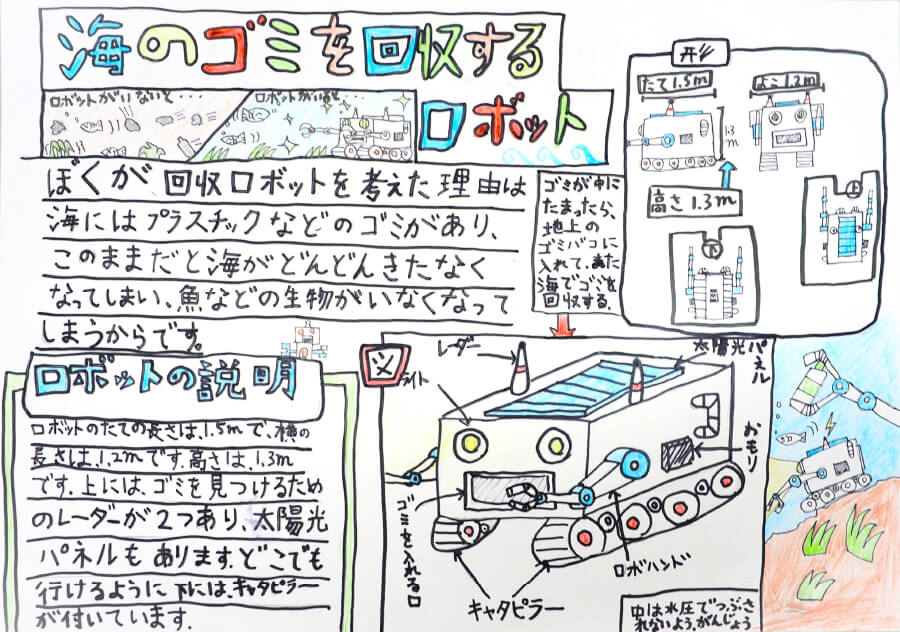 海のゴミを回収する
ロボット
ロボットがいないと・・・
ロボットがいると・・・
ぼくが回収ロボットを考えた理由は
海にはプラスチックなどのゴミがあり、
このままだと海がどんどんきたなく
なってしまい、魚などの生物がいなくなって
しまうからです。
ゴミが中に
たまったら、
地上の
ゴミバコに
入れて、また
海でゴミを
回収する。
形
たて1.5m
よこ1.2m
1.3m
高さ1.3m
上
下
ロボットの説明
ロボットのたての長さは、1.5mで、横の
長さは、1.2mです。高さは、1.3m
です。上には、ゴミを見つけるため
のレーダーが2つあり、太陽光
パネルもあります。どこでも
行けるように下には、キャタピラー
が付いています。
図
レーダー
太陽光パネル
ライト
おもり
ゴミを入れる口
ロボハンド
キャタピラー
中は水圧でつぶさ
れないよう、がんじょう